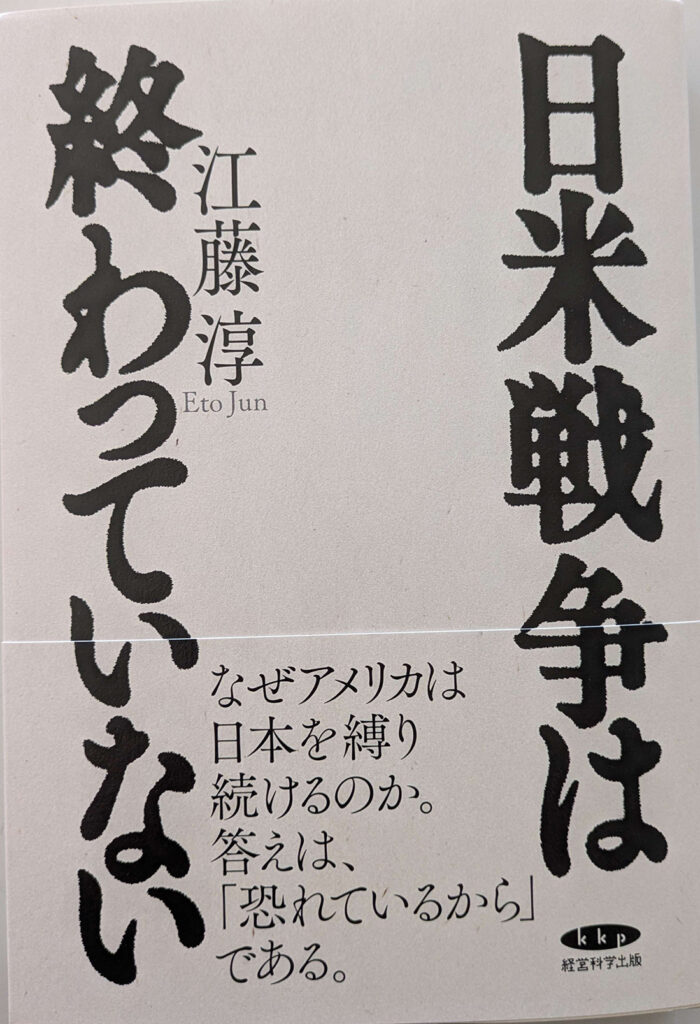 日米戦争は
終わっていない
江藤淳
Eto Jun
なぜアメリカは
日本を縛り
続けるのか。
答えは、
「恐れているから」
である。
kkp
経営科学出版